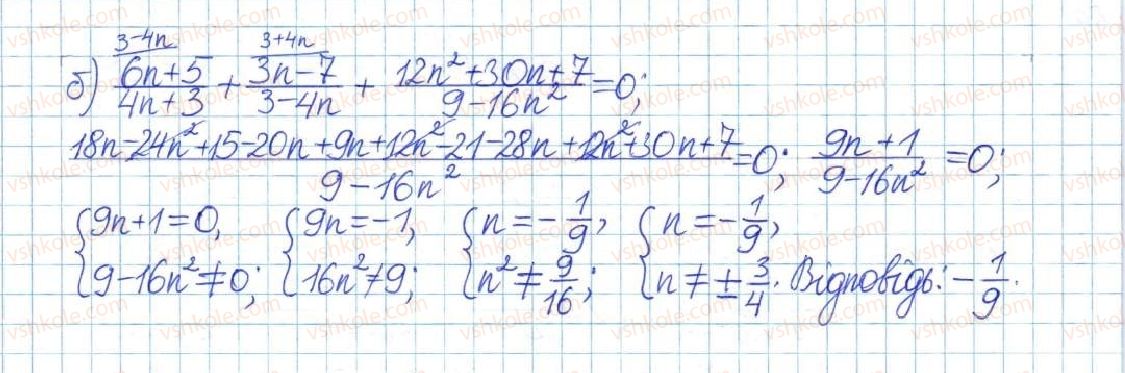 б) 3-4n / (6n+5)/(4n+3) + 3+4n / (3n-7)/(3-4n) + (12n²+30n+7)/(9-16n²) = 0;
(18n-24n²+15-20n+9n+12n²-21-28n+12n²+30n+7)/(9-16n²) = 0; (9n+1)/(9-16n²) = 0;
{9n+1=0, {9n=-1, {n=-1/9, {n=-1/9,
9-16n²≠0; 16n²≠9; n²≠9/16; n≠±3/4. Відповідь: -1/9.
vshkole.com